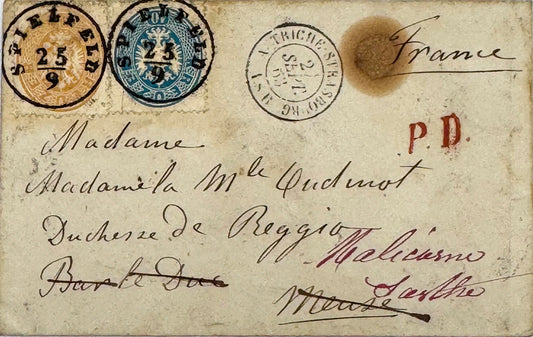 SPIELFELD
25
9
SPIELFELD
25
9
AUTRICHE-STRASBOURG
SEPT.
P.D.
France
Madame
Madame la Mle Oudinot
Duchesse de Reggio
Malicorne
Bar le Duc
Sarthe
Meuse